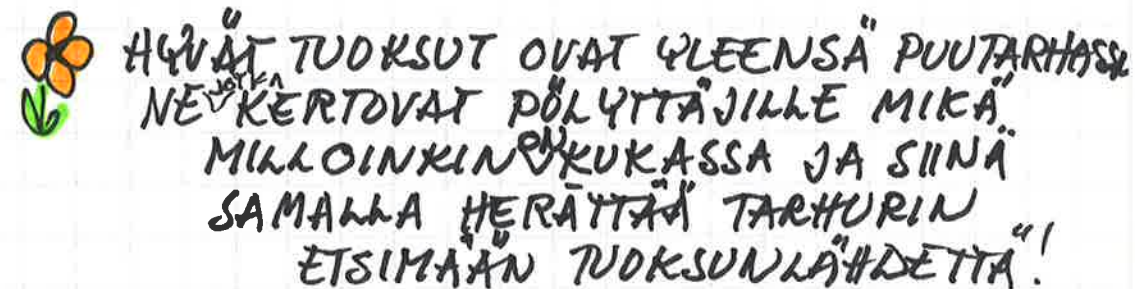 HYVÄT TUOKSUT OVAT YLEENSÄ PUUTARHASSA
NE JOTKA KERTOVAT PÖLYTTÄJILLE MIKÄ
MILLOINKIN ON KUKASSA JA SIINÄ
SAMALLA HERÄTTÄÄ TARHURIN
ETSIMÄÄN TUOKSUNLÄHDETTÄ!